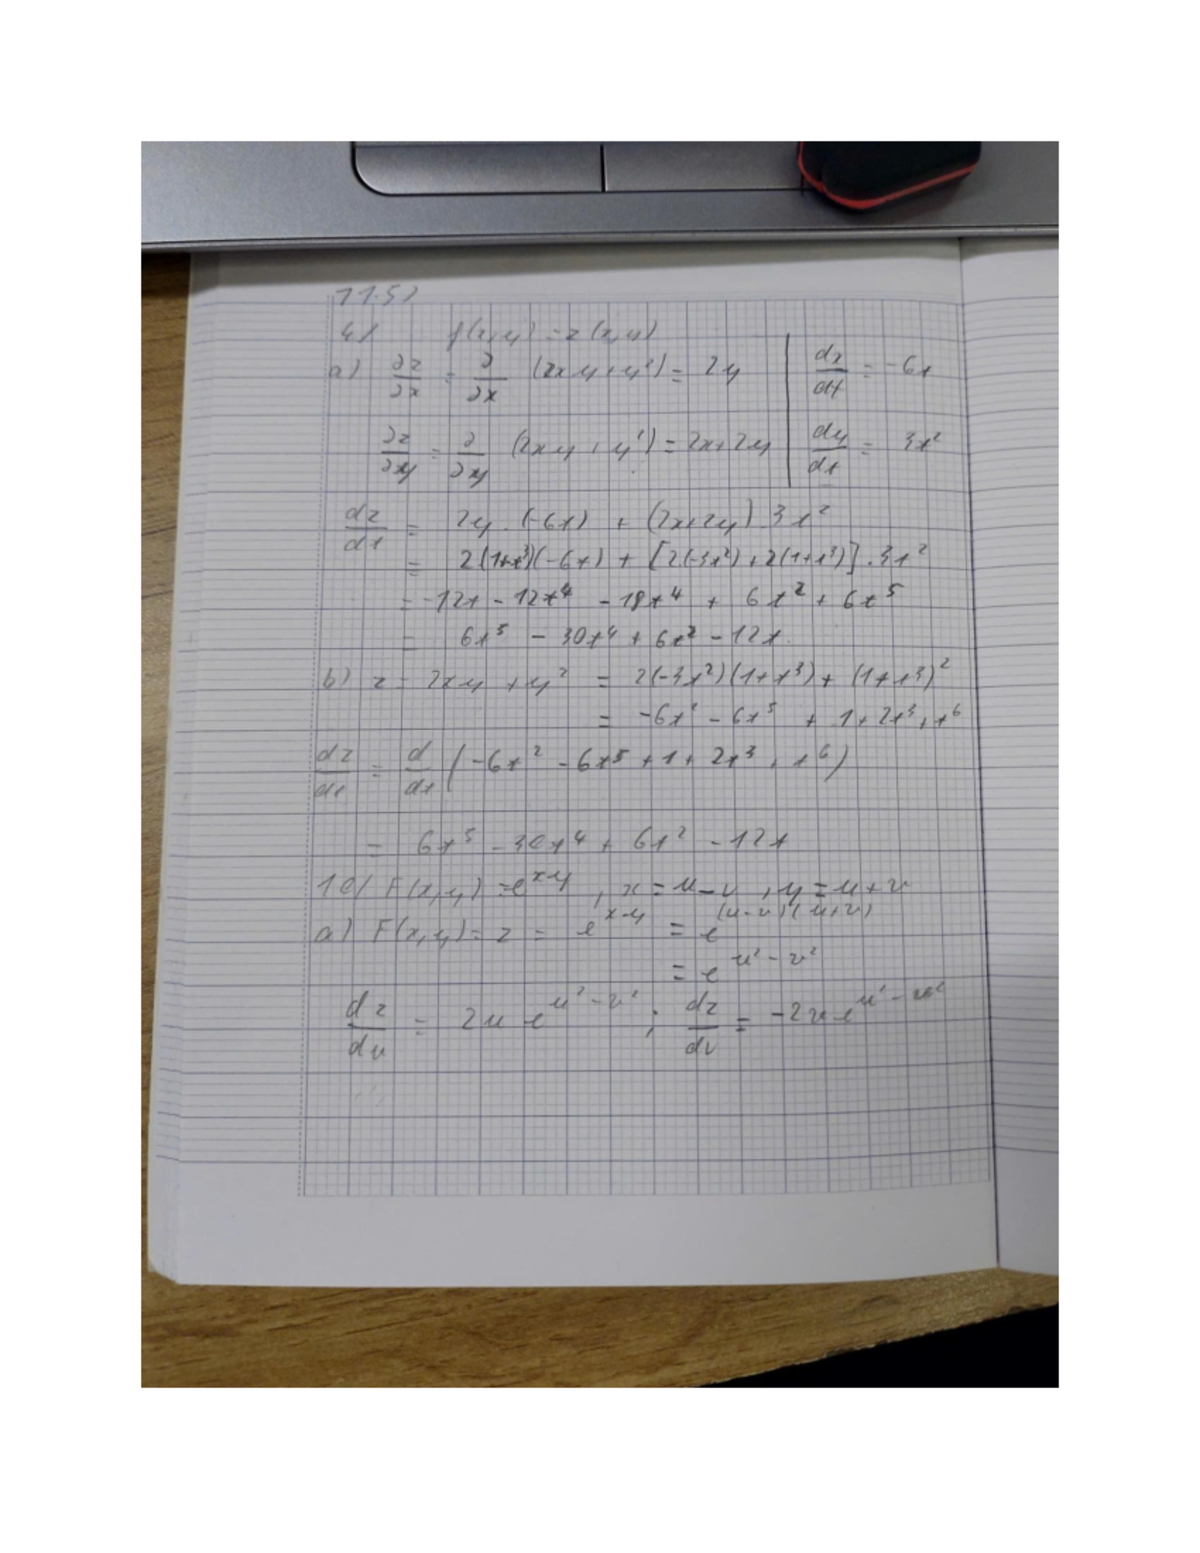 11.5)
4) f(x,y) = z(x,y)
a) ∂z/∂x = ∂/∂x (2xy+y²) = 2y | dx/dt = -6t
∂z/∂y = ∂/∂y (2xy+y²) = 2x+2y | dy/dt = 3t²
dz/dt = 2y.(-6t) + (2x+2y).3t²
= 2(1+t³)(-6t) + [2(-3t²)+2(1+t³)].3t²
= -12t - 12t⁴ - 18t⁴ + 6t² + 6t⁵
= 6t⁵ - 30t⁴ + 6t² - 12t.
b) z = 2xy + y² = 2(-3t²)(1+t³) + (1+t³)²
= -6t² - 6t⁵ + 1+2t³+t⁶
dz/dt = d/dt (-6t² - 6t⁵ + 1 + 2t³ + t⁶)
= 6t⁵ - 30t⁴ + 6t² - 12t
10) F(x,y) = e^xy , x = u-v , y = u+v
a) F(x,y) = z = e^xy = e^(u-v)(u+v)
= e^u²-v²
dz/du = 2u e^u²-v² ; dz/dv = -2v e^u²-v²